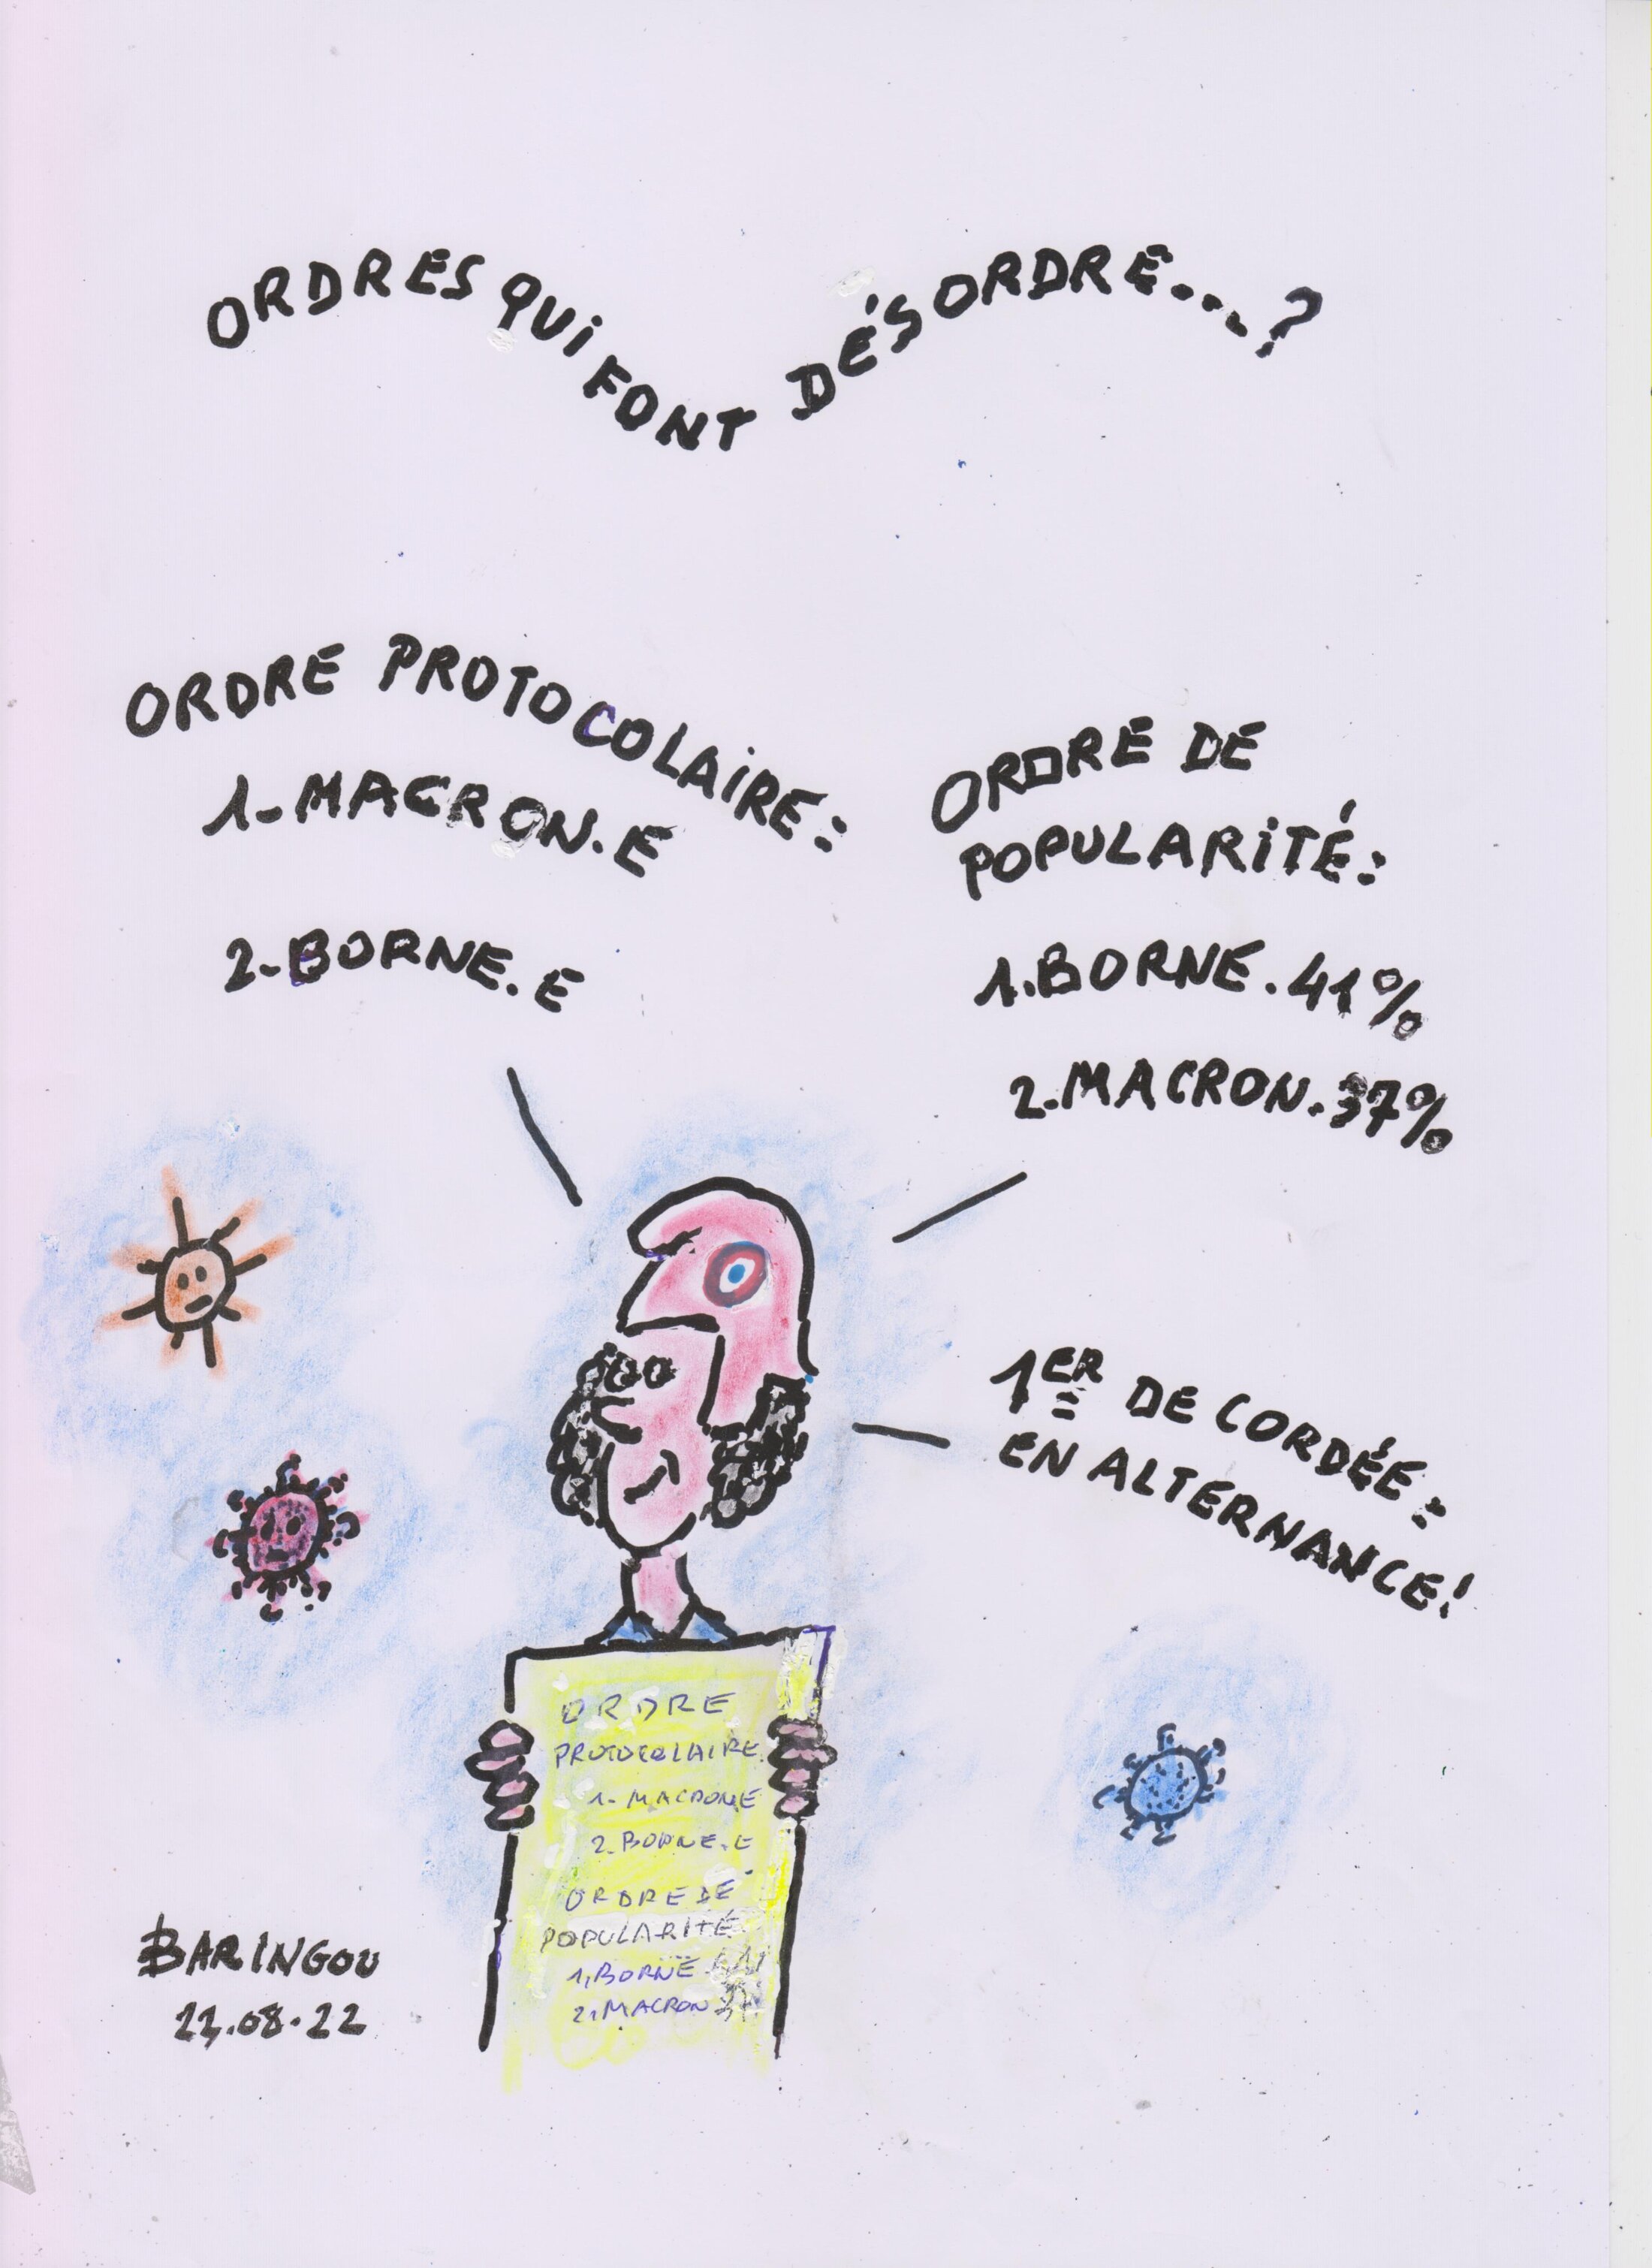 ORDRES QUI FONT DÉSORDRE...?
ORDRE PROTOCOLAIRE:
1-MACRON.E
2-BORNE.E
ORDRE DE
POPULARITÉ:
1.BORNE.41%
2-MACRON.37%
1ER DE CORDÉE:
EN ALTERNANCE!
ORDRE
PROTOCOLAIRE.
1- MACRONE
2-BORNE.E
ORDRE DE
POPULARITÉ
1,BORNE
2,MACRON 37
BARINGOU
22.08.22